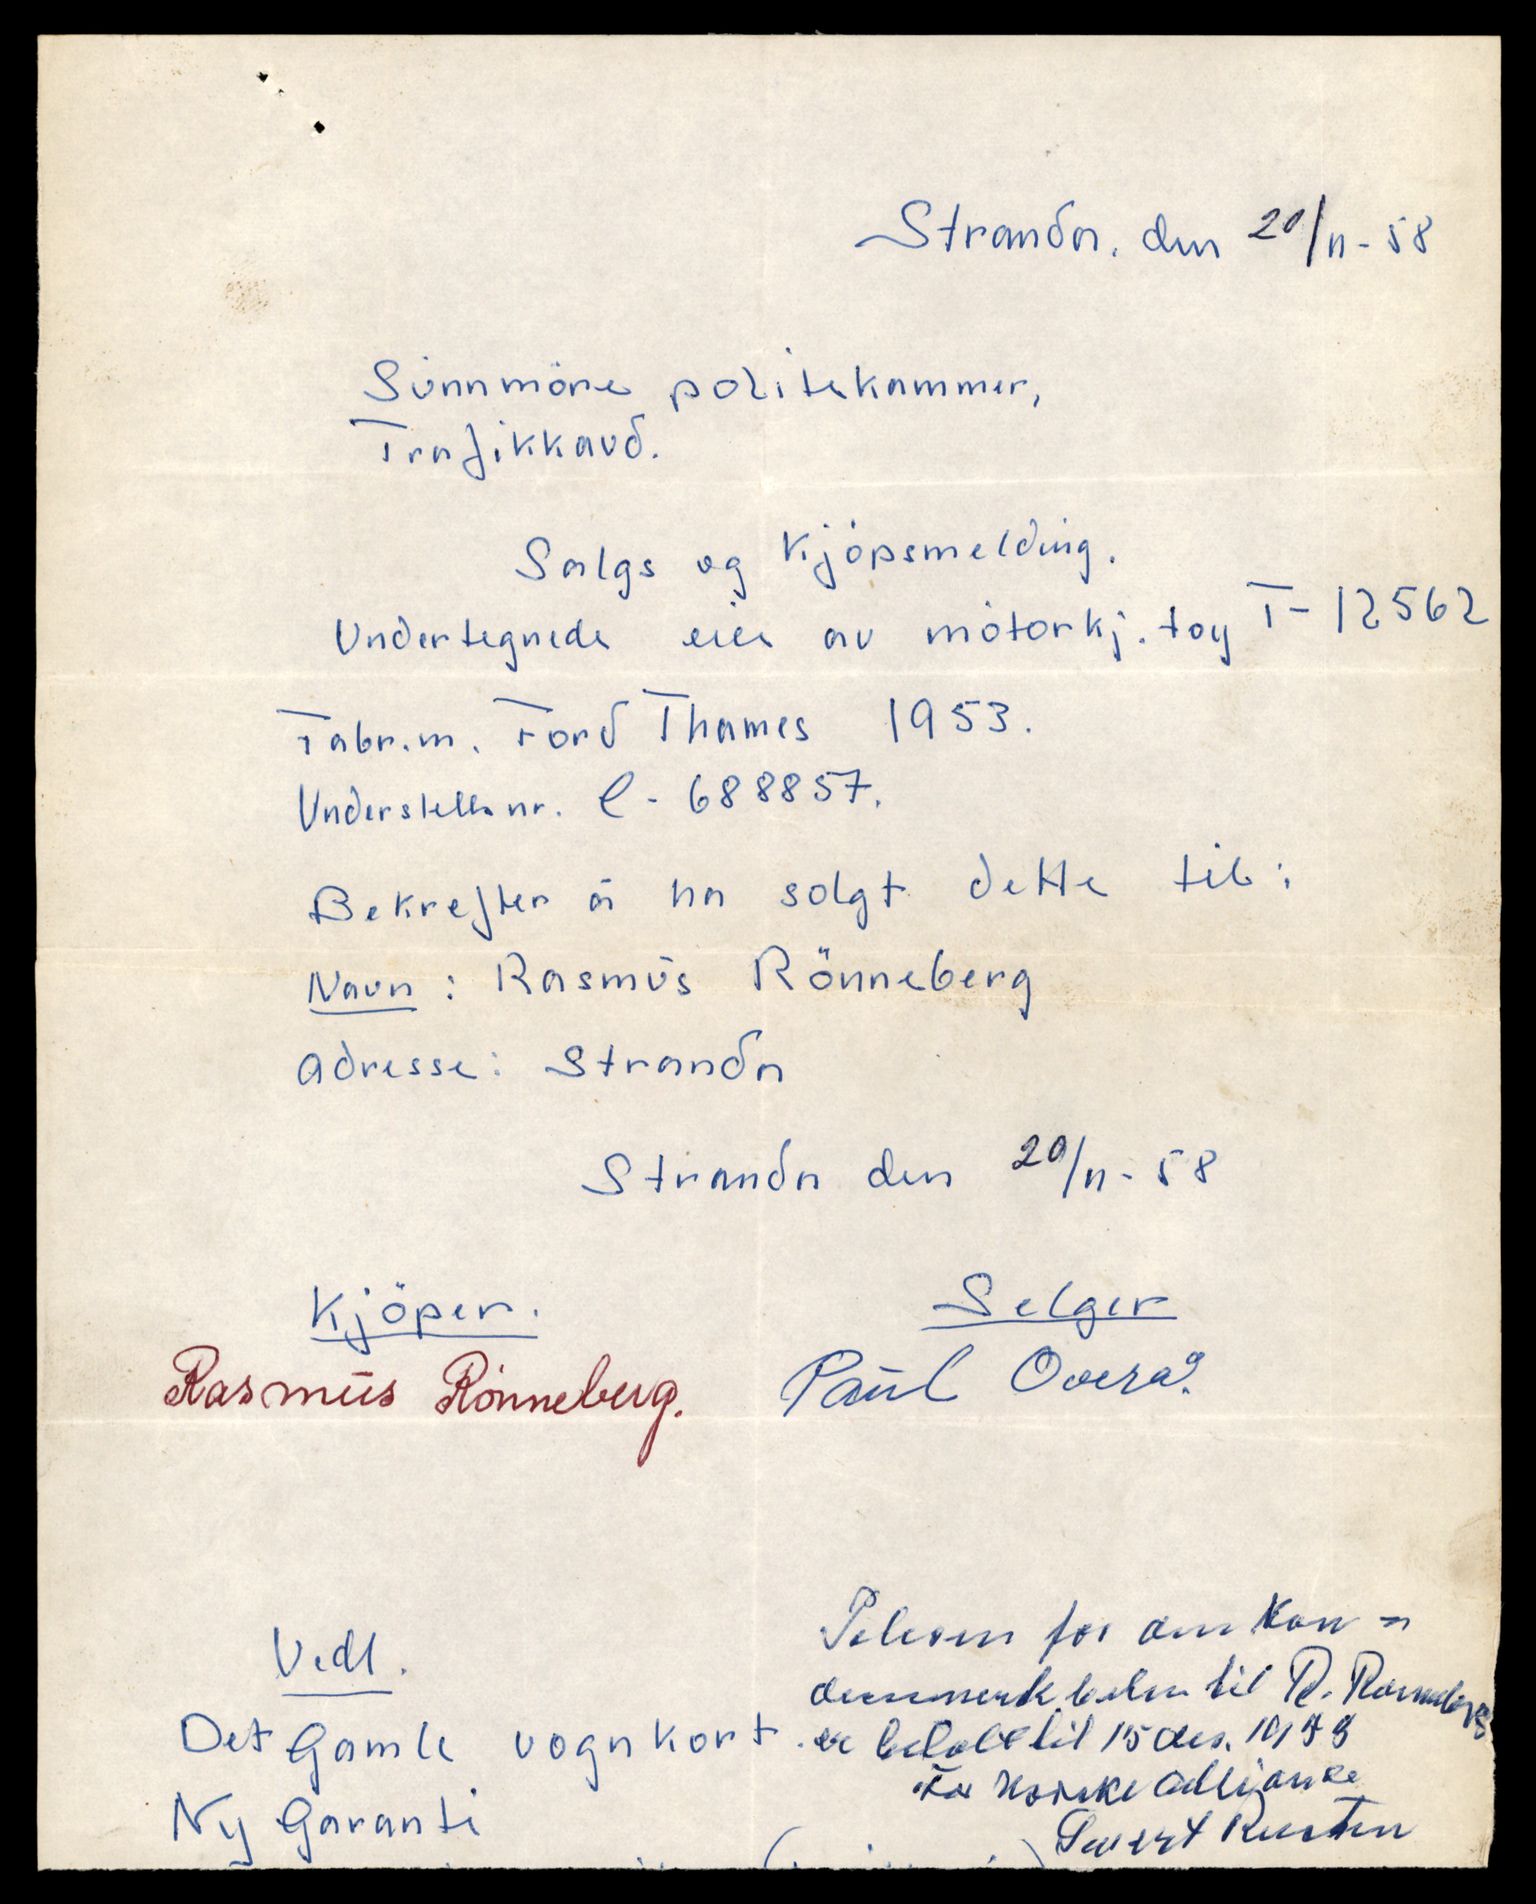 Stranda. den 20/11-58
Sünnmöre politekammer,
Trafikkavd.
Salgs og Kjöpsmelding.
Undertegnede eier av motorkj.tøy T-12562
Fabr.m. Ford Thames 1953.
Understells nr. C-688857.
Bekrefter å ha solgt dette til:
Navn: Rasmus Rönneberg
Adresse: Stranda
Stranda den 20/11-58
Kjöper. Selger
Rasmus Rönneberg. Paul Overå.
Vedl.
Det Gamle vognkort.
Ny Garanti
for
til R. Rønneberg
er betalt til 15 des. 19
For Norske Alliance
Severt Rusten